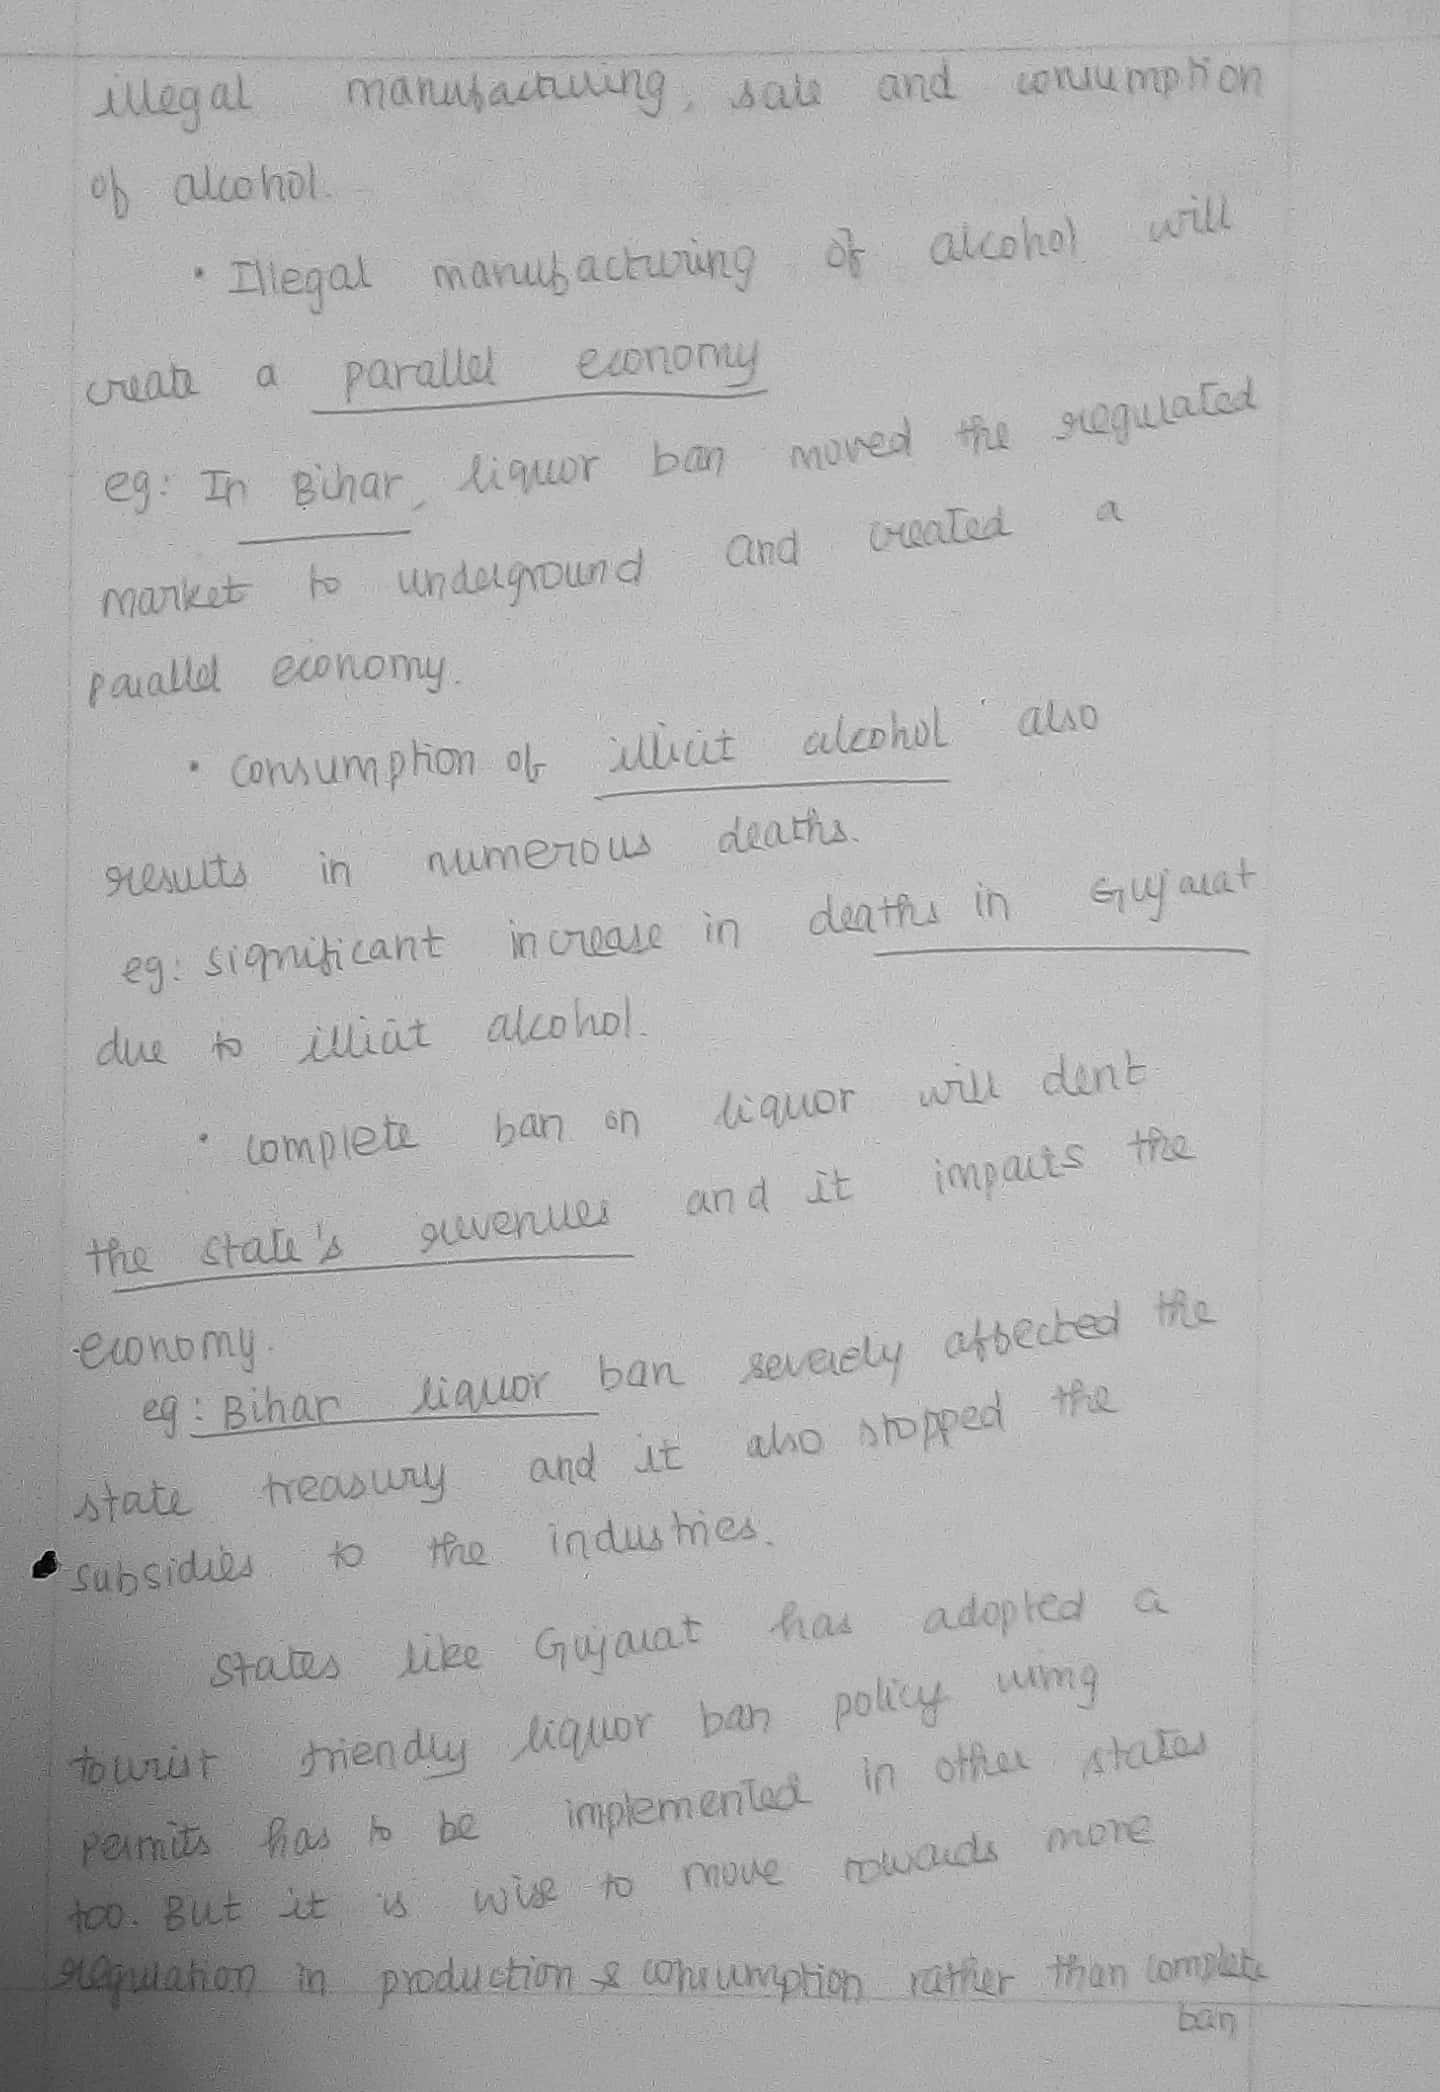 illegal manufacturing, sale and consumption
of alcohol.
• Illegal manufacturing of alcohol will
create a parallel economy
eg: In Bihar, liquor ban moved the regulated
market to underground and created a
parallel economy.
• consumption of illicit alcohol also
results in numerous deaths.
eg: significant increase in deaths in Gujarat
due to illicit alcohol.
• complete ban on liquor will dent
the state's revenues and it impacts the
economy.
eg: Bihar liquor ban severely affected the
state treasury and it also stopped the
subsidies to the industries.
states like Gujarat has adopted a
tourist friendly liquor ban policy using
permits has to be implemented in other states
too. But it is wise to move towards more
regulation in production & consumption rather than complete
ban